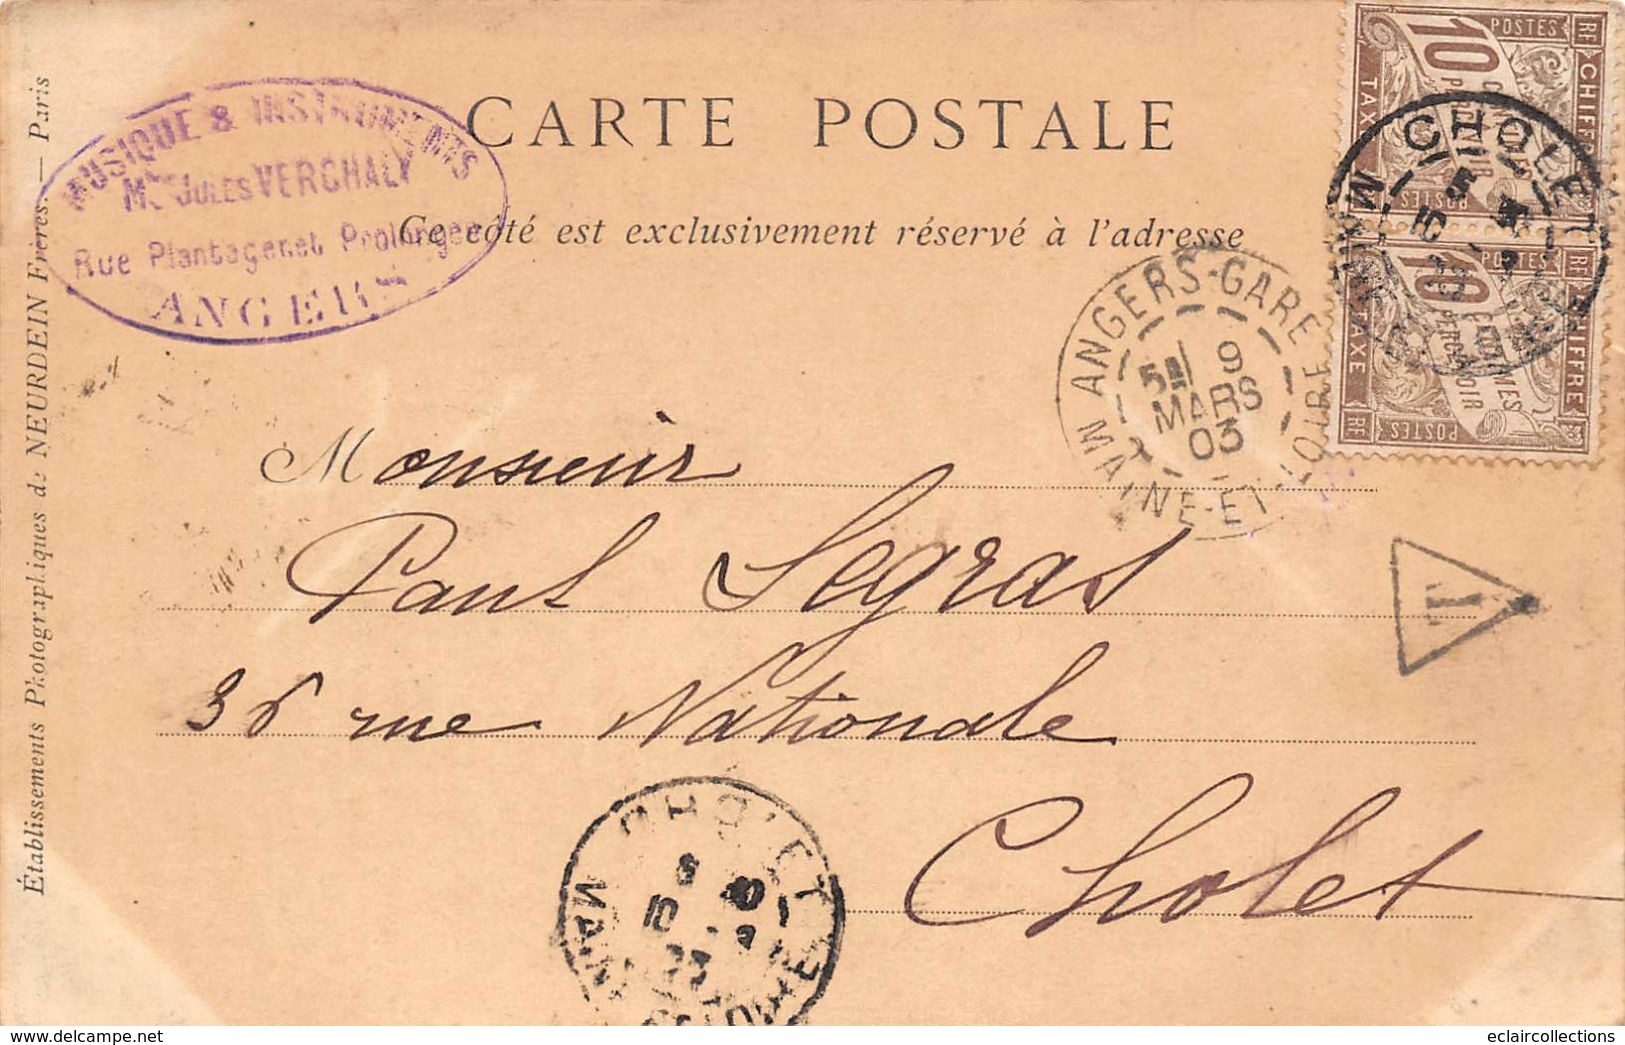 CARTE POSTALE
Ce côté est exclusivement réservé à l'adresse
MUSIQUE & INSTRUMENTS
JULES VERCHALY
Rue Plantagenet Prolongée
ANGERS
Établissements Photographiques de NEURDEIN Frères. — Paris
ANGERS-GARE
9
MARS
03
MAINE-ET-LOIRE
CHOLET
POSTES RF
10 CENTIMES
PERCEVOIR
CHIFFRE
TAXE
POSTES
POSTES RF
10 CENTIMES
PERCEVOIR
CHIFFRE
TAXE
POSTES RF
T
Monsieur
Paul Segras
36 rue Nationale
Cholet
CHOLET
MAINE
eclaircollections
www.delcampe.net